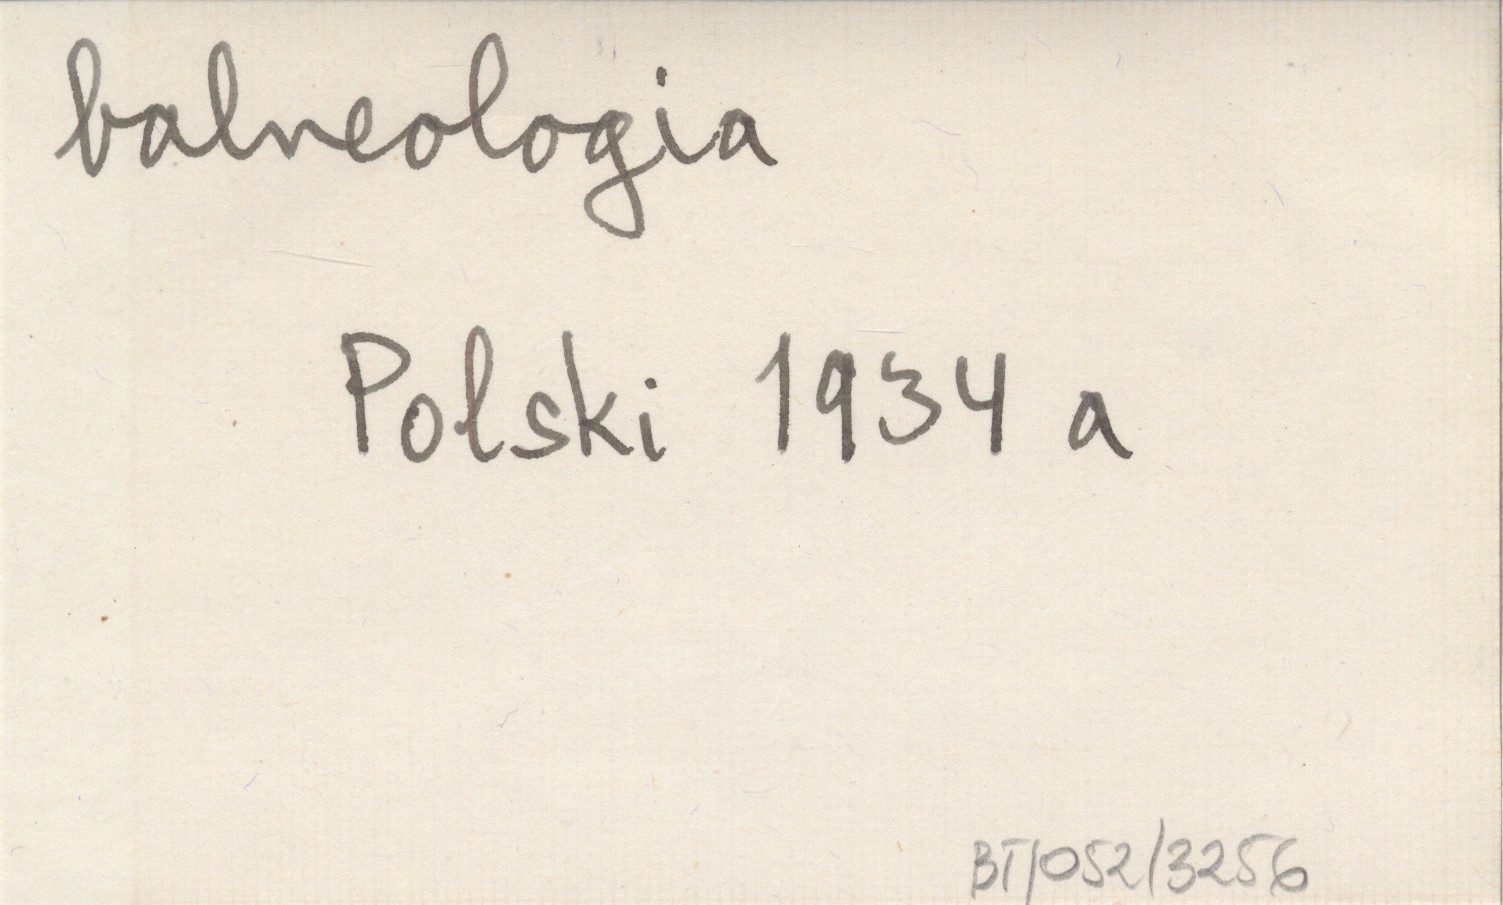 balneologia
Polski 1934 a
BT/052/3256